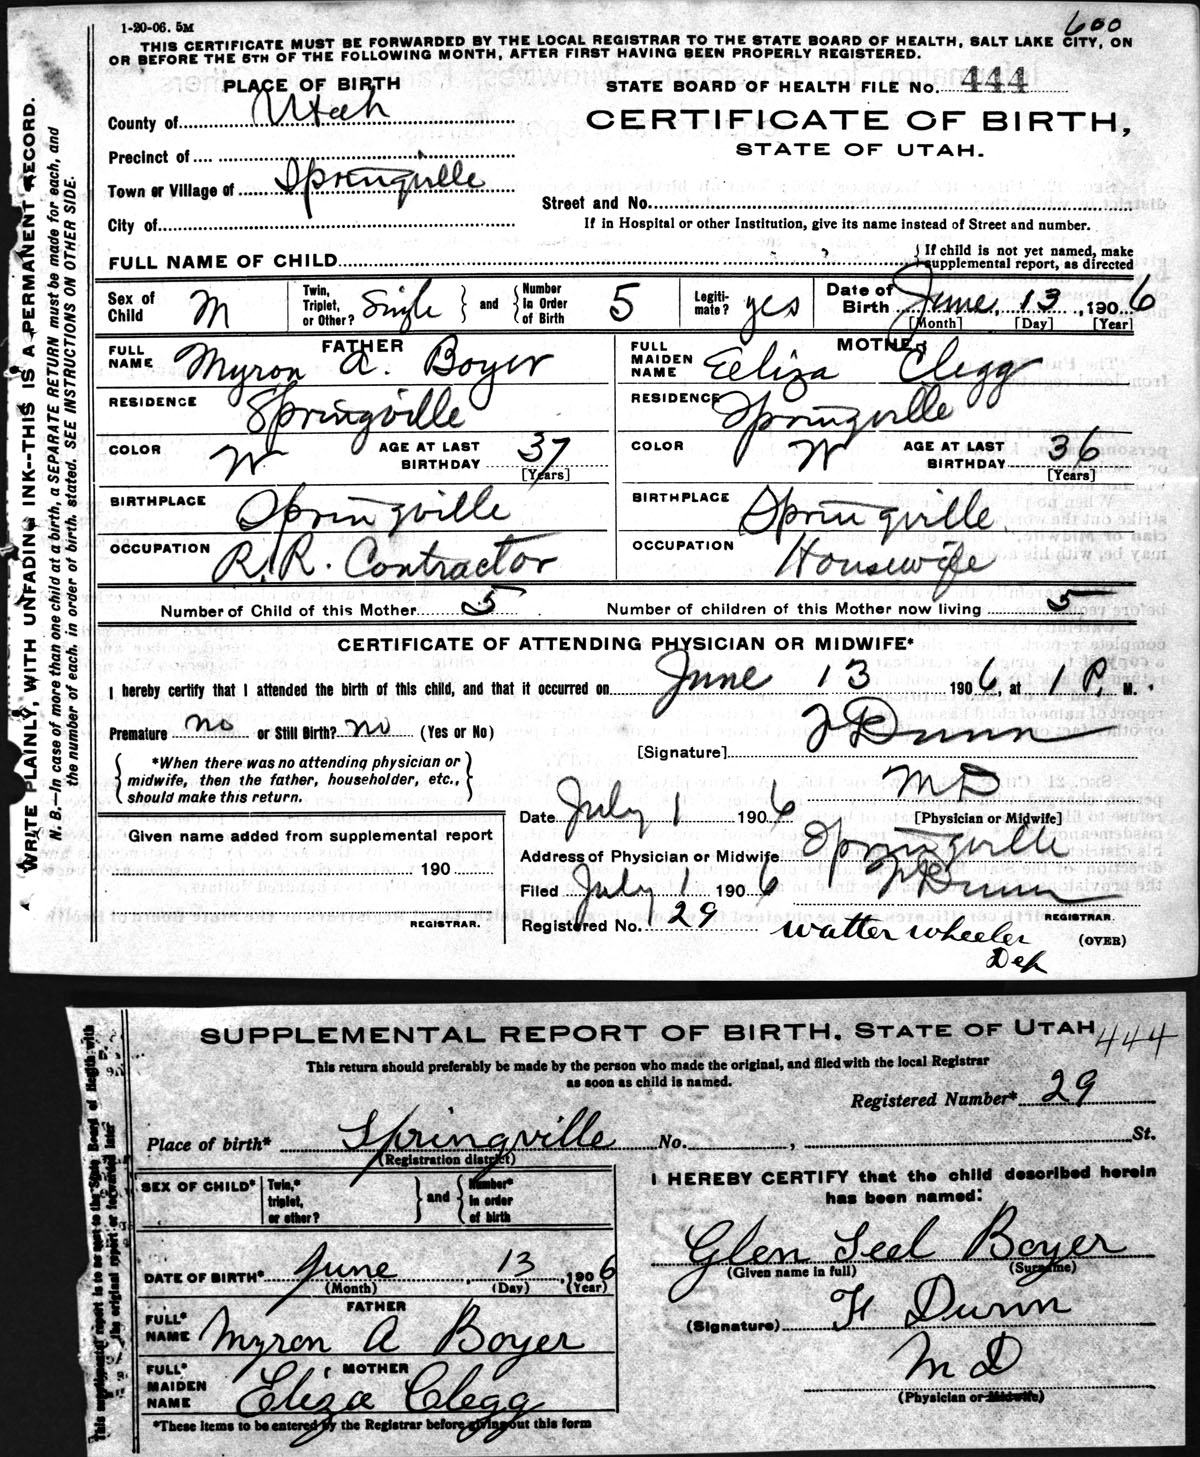 1-20-06. 5M
600
THIS CERTIFICATE MUST BE FORWARDED BY THE LOCAL REGISTRAR TO THE STATE BOARD OF HEALTH, SALT LAKE CITY, ON
OR BEFORE THE 5TH OF THE FOLLOWING MONTH, AFTER FIRST HAVING BEEN PROPERLY REGISTERED.
PLACE OF BIRTH
STATE BOARD OF HEALTH FILE No. 444
County of Utah
CERTIFICATE OF BIRTH,
STATE OF UTAH.
Precinct of
Town or Village of Springville
Street and No.
City of
If in Hospital or other Institution, give its name instead of Street and number.
FULL NAME OF CHILD
If child is not yet named, make
supplemental report, as directed
Sex of Child M
Twin, Triplet, or Other? Single and Number In Order of Birth 5
Legiti-mate? yes
Date of Birth June 13, 1906
[Month] [Day] [Year]
FATHER
FULL NAME Myron A. Boyer
RESIDENCE Springville
COLOR W AGE AT LAST BIRTHDAY 37
[Years]
BIRTHPLACE Springville
OCCUPATION R.R. Contractor
MOTHER
FULL MAIDEN NAME Eeliza Clegg
RESIDENCE Springville
COLOR W AGE AT LAST BIRTHDAY 36
[Years]
BIRTHPLACE Springville
OCCUPATION Housewife
Number of Child of this Mother 5 Number of children of this Mother now living 5
CERTIFICATE OF ATTENDING PHYSICIAN OR MIDWIFE*
I hereby certify that I attended the birth of this child, and that it occurred on June 13 1906, at 1 P. M.
Premature no or Still Birth? no (Yes or No)
[Signature] F Dunn
MD
[Physician or Midwife]
*When there was no attending physician or
midwife, then the father, householder, etc.,
should make this return.
Date July 1 1906
Given name added from supplemental report
190
REGISTRAR.
Address of Physician or Midwife Springville
Filed July 1 1906 F Dunn
REGISTRAR.
Registered No. 29
Walter Wheeler
Dep
(OVER)
WRITE PLAINLY, WITH UNFADING INK--THIS IS A PERMANENT RECORD.
N. B.—In case of more than one child at a birth, a SEPARATE RETURN must be made for each, and
the number of each, in order of birth, stated. SEE INSTRUCTIONS ON OTHER SIDE.
SUPPLEMENTAL REPORT OF BIRTH, STATE OF UTAH
444
This return should preferably be made by the person who made the original, and filed with the local Registrar
as soon as child is named.
Registered Number* 29
Place of birth* Springville No. , St.
(Registration district)
SEX OF CHILD* Twin,* triplet, or other? and Number* in order of birth
DATE OF BIRTH* June 13, 1906
(Month) (Day) (Year)
FATHER
FULL* NAME Myron A Boyer
MOTHER
FULL* MAIDEN NAME Eliza Clegg
*These items to be entered by the Registrar before giving out this form
I HEREBY CERTIFY that the child described herein
has been named:
Glen Seel Boyer
(Given name in full) (Surname)
(Signature) F Dunn
M D
(Physician or Midwife)